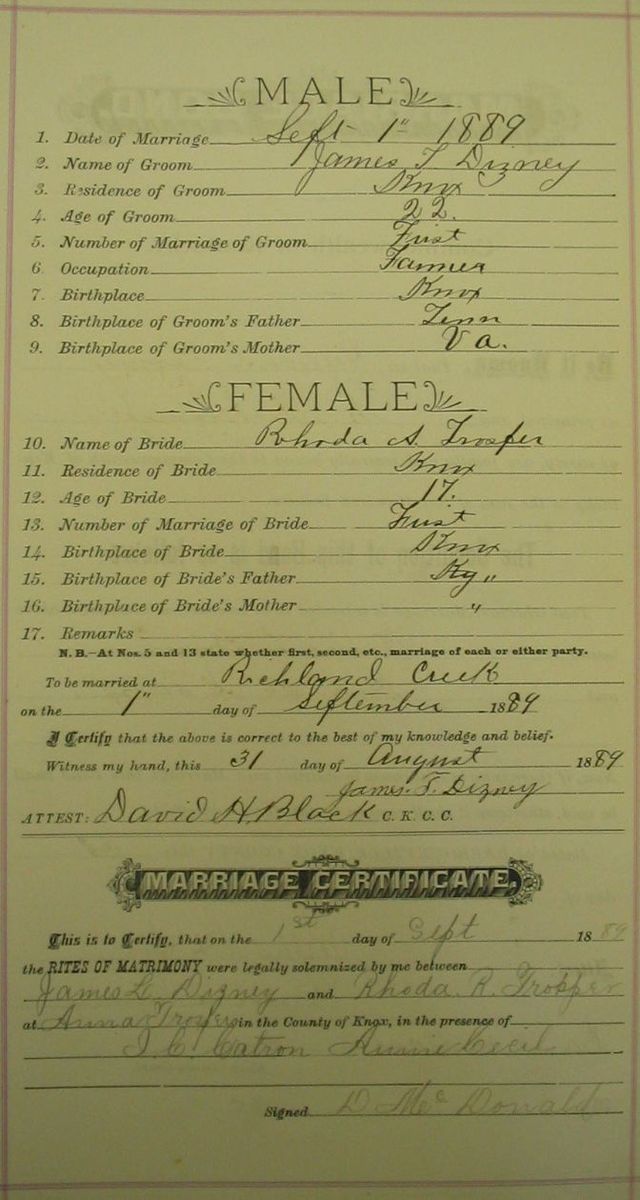 MALE
1. Date of Marriage Sept 1" 1889
2. Name of Groom James T. Dizney
3. Residence of Groom Knox
4. Age of Groom 22.
5. Number of Marriage of Groom First
6. Occupation Farmer
7. Birthplace Knox
8. Birthplace of Groom's Father Tenn
9. Birthplace of Groom's Mother Va.
FEMALE
10. Name of Bride Rhoda A. Trosper
11. Residence of Bride Knox
12. Age of Bride 17.
13. Number of Marriage of Bride First
14. Birthplace of Bride Knox
15. Birthplace of Bride's Father Ky "
16. Birthplace of Bride's Mother "
17. Remarks
N. B.—At Nos. 5 and 13 state whether first, second, etc., marriage of each or either party.
To be married at Richland Creek
on the 1" day of September 1889
I Certify that the above is correct to the best of my knowledge and belief.
Witness my hand, this 31 day of August 1889
James T. Dizney
ATTEST: David H. Black C. K. C. C.
MARRIAGE CERTIFICATE.
This is to Certify, that on the 1st day of Sept 1889
the RITES OF MATRIMONY were legally solemnized by me between
James Dizney and Rhoda R. Trosper
at in the County of Knox, in the presence of
Catron Annie Cecil
Signed D McDonald